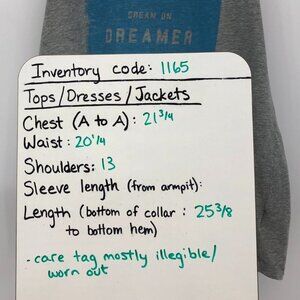 DREAM ON
DREAMER
Inventory code: 1165
Tops/Dresses/Jackets
Chest (A to A): 21 3/4
Waist: 20 1/4
Shoulders: 13
Sleeve length (from armpit):
Length (bottom of collar : 25 3/8
to bottom hem)
- care tag mostly illegible/
worn out